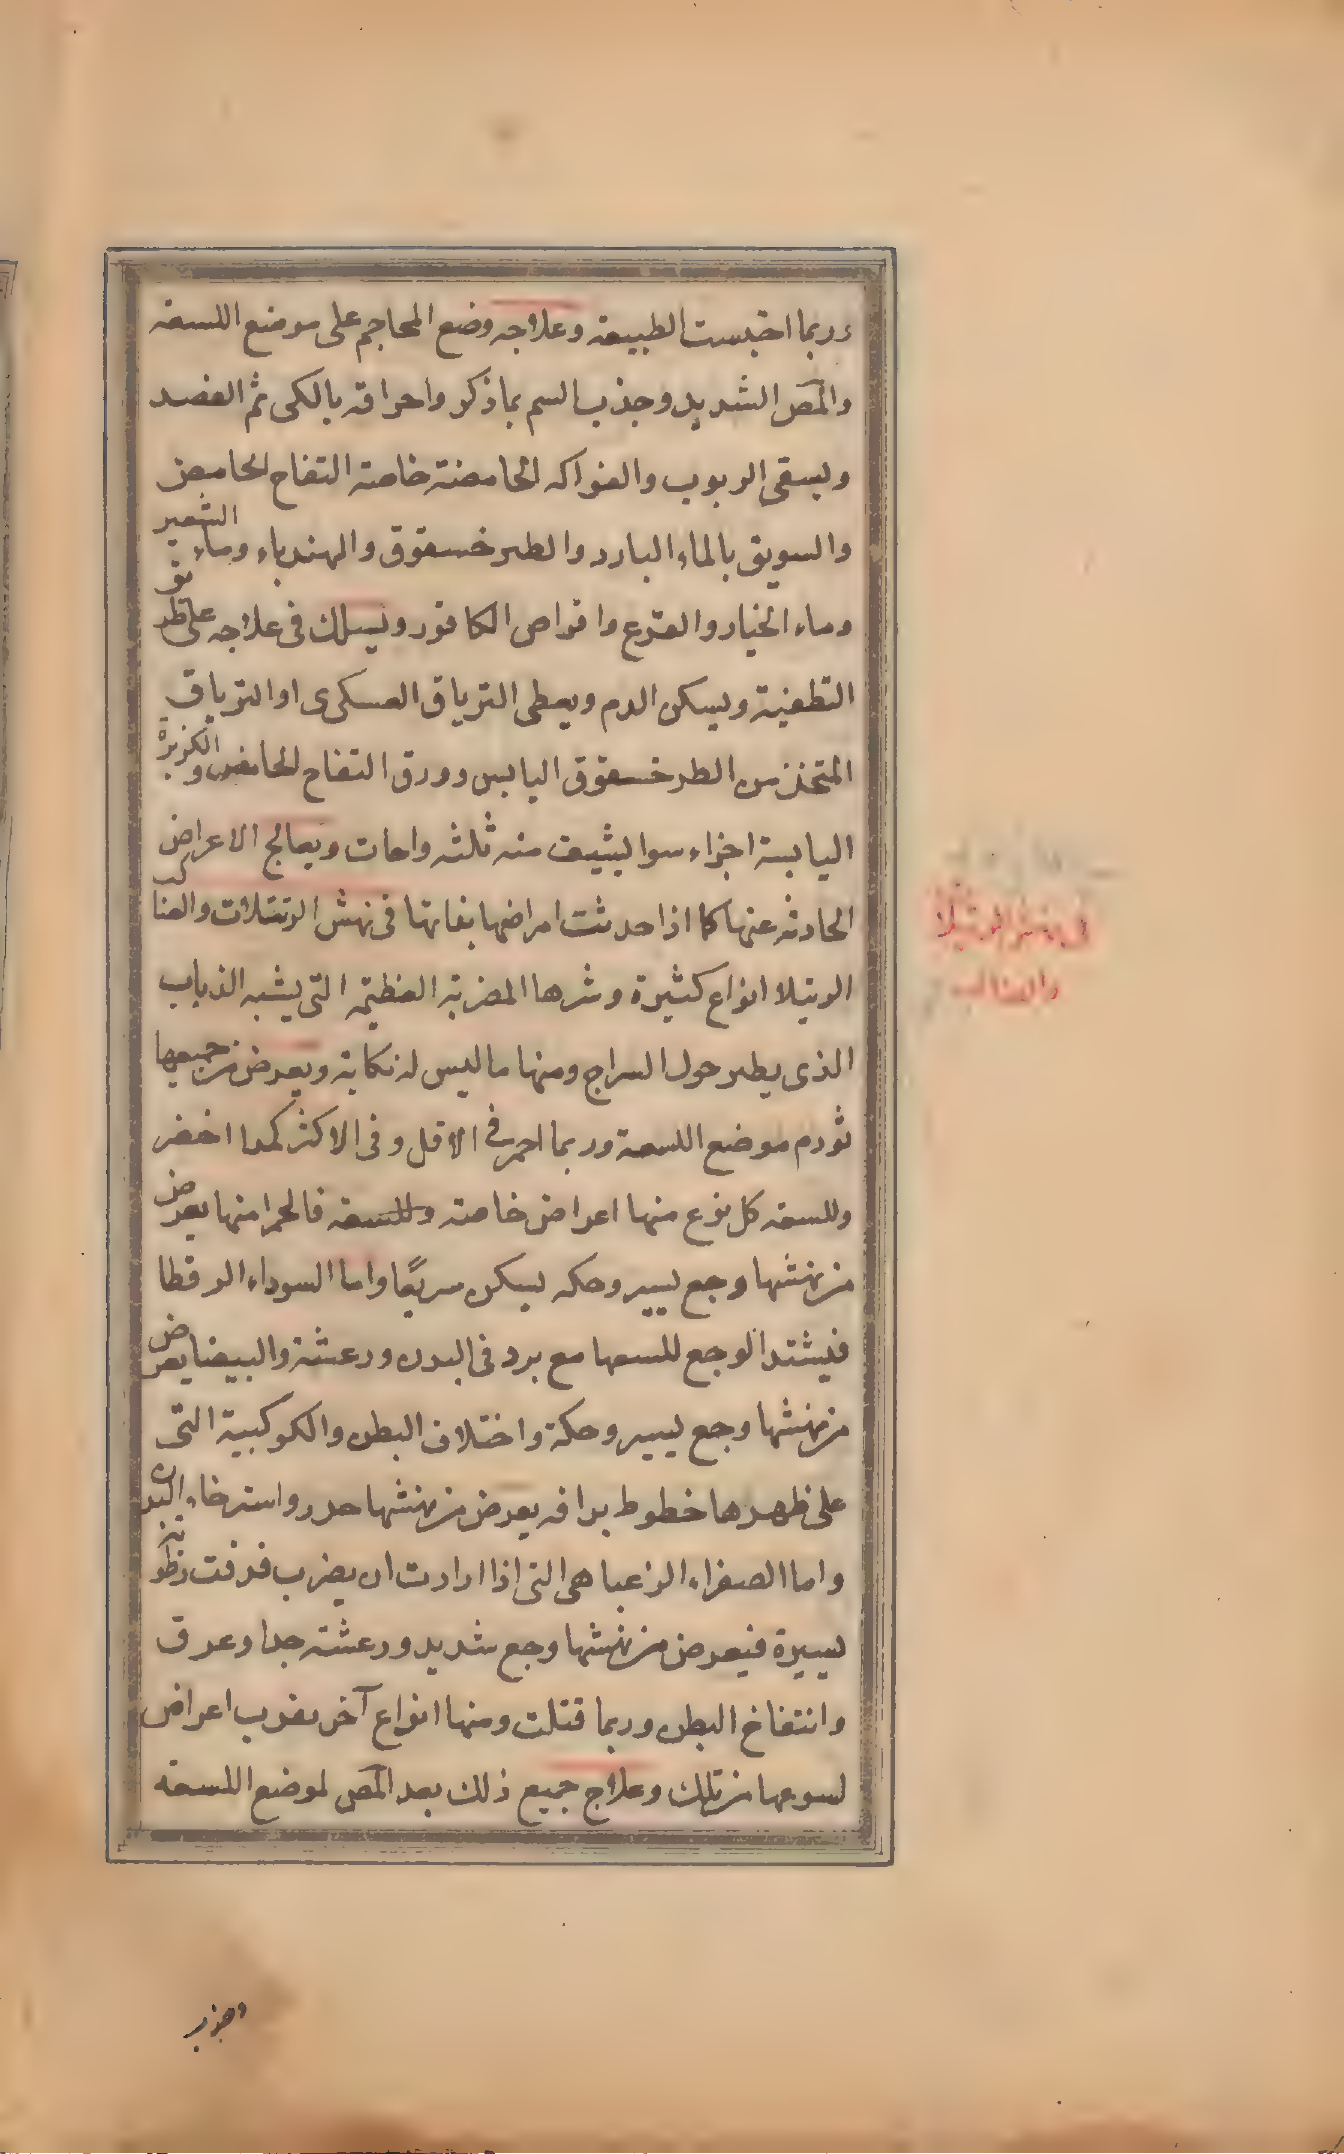 وربما احتبست الطبيعة وعلاجه وضع المحاجم على موضع اللسعة
والمص الشديد وجذب السم بما ذكر واحراقه بالكى ثم الفصد
ويسقى الربوب والفواكه الحامضة خاصة التفاح الحامض
والسويق بالماء البارد والطرخسقوق والهندباء وماء الشعير
وماء الخيار والقرع واقراص الكافور ويسلك فى علاجه على طريق
التطفية ويسكن الدم ويعطى الترياق العسكرى او الترياق
المتخذ من الطرخسقوق اليابس وورق التفاح الحامض والكزبرة
اليابسة اجزاء سوا ليشيف منه ثلثه واحات ويعالج الاعراض
الحادثه عنها كما اذا حدثت امراضها بغاتها فى نهش الرتيلات والعناكب
الرتيلا انواع كثيرة وشرها المضربة العظيمة التى يشبه الذباب
الذى يطير حول السراج ومنها ما ليس له نكاية ويعرض من جميعها
تورم موضع اللسعة وربما احمر فى الاقل وفى الاكثر كمدا اخضر
وللسعة كل نوع منها اعراض خاصة وللسعة فالحمرا منها يعرض
من نهشها وجع يسير وحكه يسكن سريعًا واما السوداء الرقطا
فيشتد الوجع للسعها مع برد فى البدن ورعشة والبيضا يعرض
من نهشها وجع يسير وحكة واختلاف البطن والكوكبية التى
على ظهرها خطوط براقه يعرض من نهشها خدر واسترخاء البدن
واما الصفراء الزغبا هى التى اذا ارادت ان يضرب قذفت
يسيرة فيعرض من نهشها وجع شديد ورعشة جدا وعرق
وانتفاخ البطن وربما قتلت ومنها انواع آخر يقرب اعراض
لسوعها من تلك وعلاج جميع ذلك بعد المص لموضع اللسعة
فى نهش الرتيلا
والعناكب
وجذب